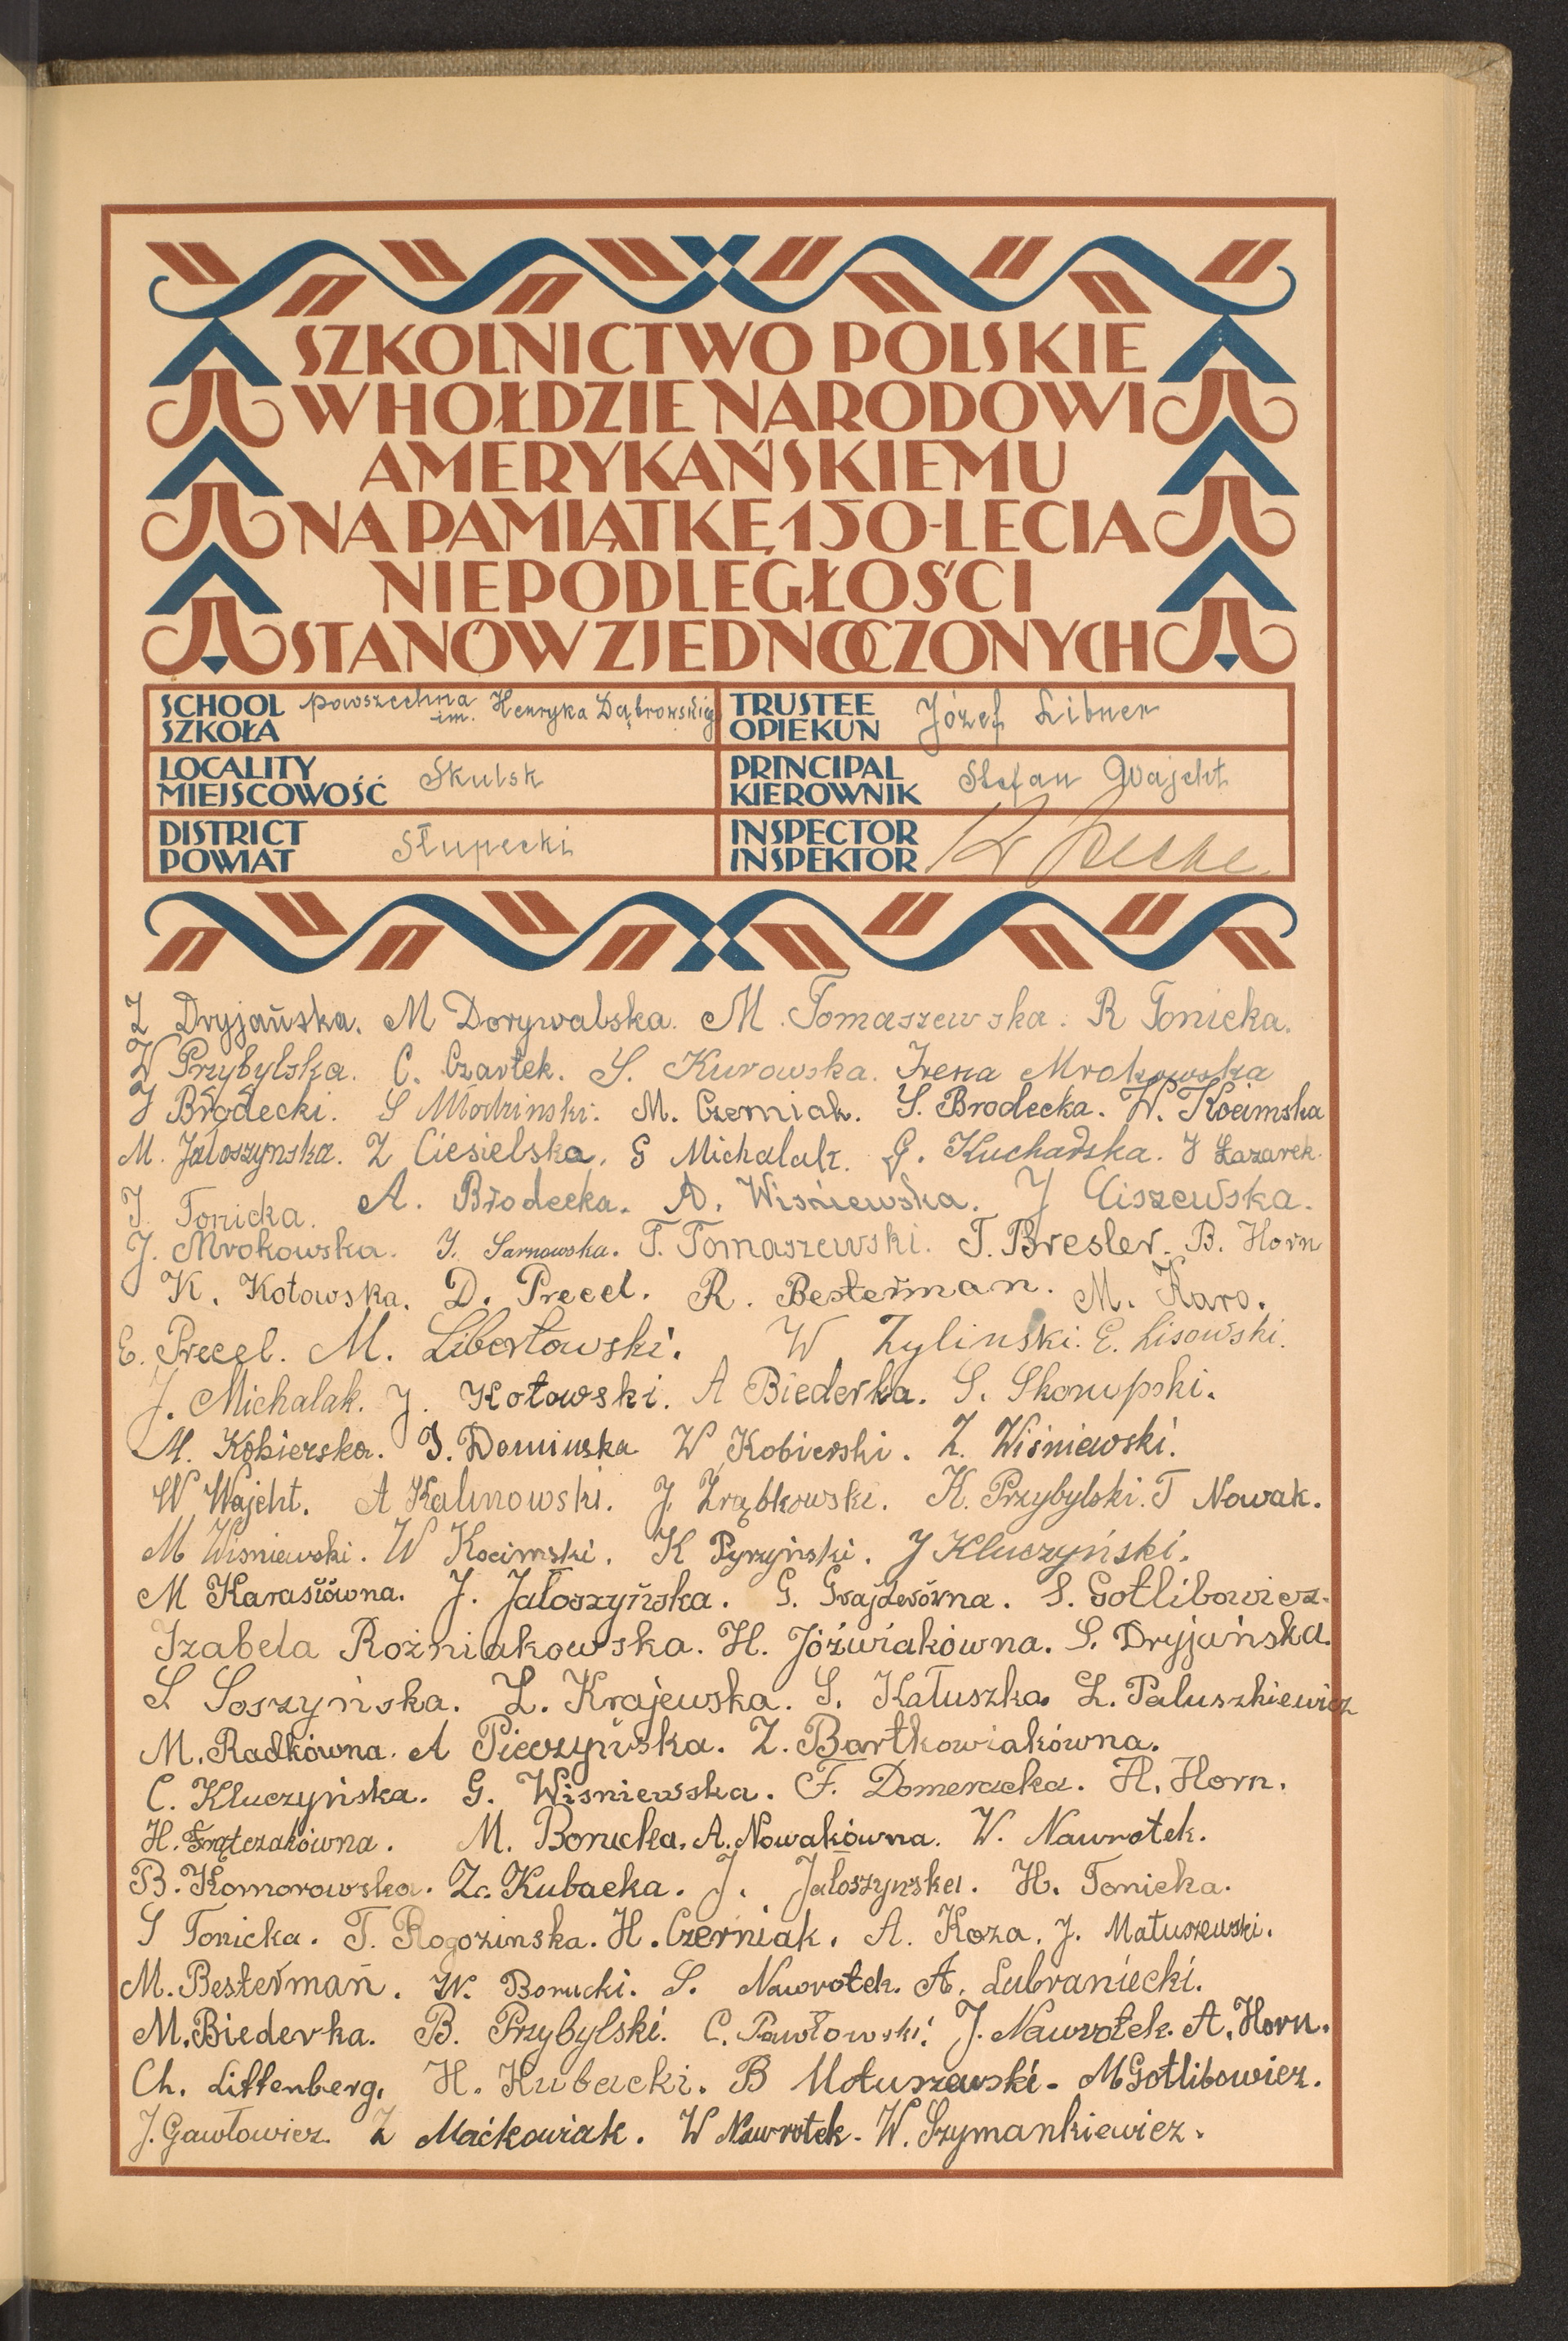 SZKOLNICTWO POLSKIE
W HOŁDZIE NARODOWI
AMERYKAŃSKIEMU
NA PAMIĄTKĘ 150-LECIA
NIEPODLEGŁOŚCI
STANÓW ZJEDNOCZONYCH
SCHOOL SZKOŁA powszechna im. Henryka Dąbrowskieg
TRUSTEE OPIEKUN Józef Libner
LOCALITY MIEJSCOWOŚĆ Skulsk
PRINCIPAL KIEROWNIK Stefan Wajcht
DISTRICT POWIAT Słupecki
INSPECTOR INSPEKTOR
Z Dryjańska. M Dorywalska. M. Tomaszewska. R Tonicka.
W Przybylska. C. Czartek. S. Kurowska. Irena Mrokowska
J Brodecki. S Młodzinski. M. Czerniak. S. Brodecka. W. Kocimska
M. Jałoszynska. Z Ciesielska. S Michalak. G. Kucharska. J Łazarek.
J. Tonicka. A. Brodecka. A. Wiśniewska. J Ciszewska.
J. Mrokowska. J. Sarnowska. T. Tomaszewski. T. Bresler. B. Horn
K. Kotowska. D. Precel. R. Besterman. M. Karo.
E. Precel. M. Libertowski. W Zylinski. E. Lisowski.
J. Michalak. J. Kotowski. A Biederka. S. Skorupski.
M. Kobierska. J. Dominska W Kobierski. Z. Wiśniewski.
W Wajcht. A Kalinowski. J. Zrąbkowski. K. Przybylski. T Nowak.
M Wisniewski. W Kocimski. K Pyrzyński. J Kluczyński.
M Karasiówna. J. Jałoszyńska. G. Grajderówna. S. Gotlibowicz.
Izabela Rozniakowska. H. Jóźwiakówna. S. Dryjańska.
S Soszyńska. L. Krajewska. S. Kałuszka. L. Paluszkiewicz
M. Radkówna. A Pieczyńska. Z. Bartkowiakówna.
C. Kluczyńska. G. Wisniewska. F. Domeracka. H. Horn.
H. Frątczakówna. M. Borucka. A. Nowakówna. W. Nawrotek.
B. Komorowska. Z. Kubacka. J. Jałoszynska. H. Tonicka.
S Tonicka. T. Rogozinska. H. Czerniak. A. Koza. J. Matuszewski.
M. Besterman. W. Borucki. S. Nawrotek. A. Lubraniecki.
M. Biederka. B. Przybylski. C. Pawłowski. J. Nawrotek. A. Horn.
Ch. Littenberg. H. Kubacki. B Matuszewski. M Gotlibowicz.
J. Gawłowicz. Z Maćkowiak. W Nawrotek. W. Szymankiewicz.